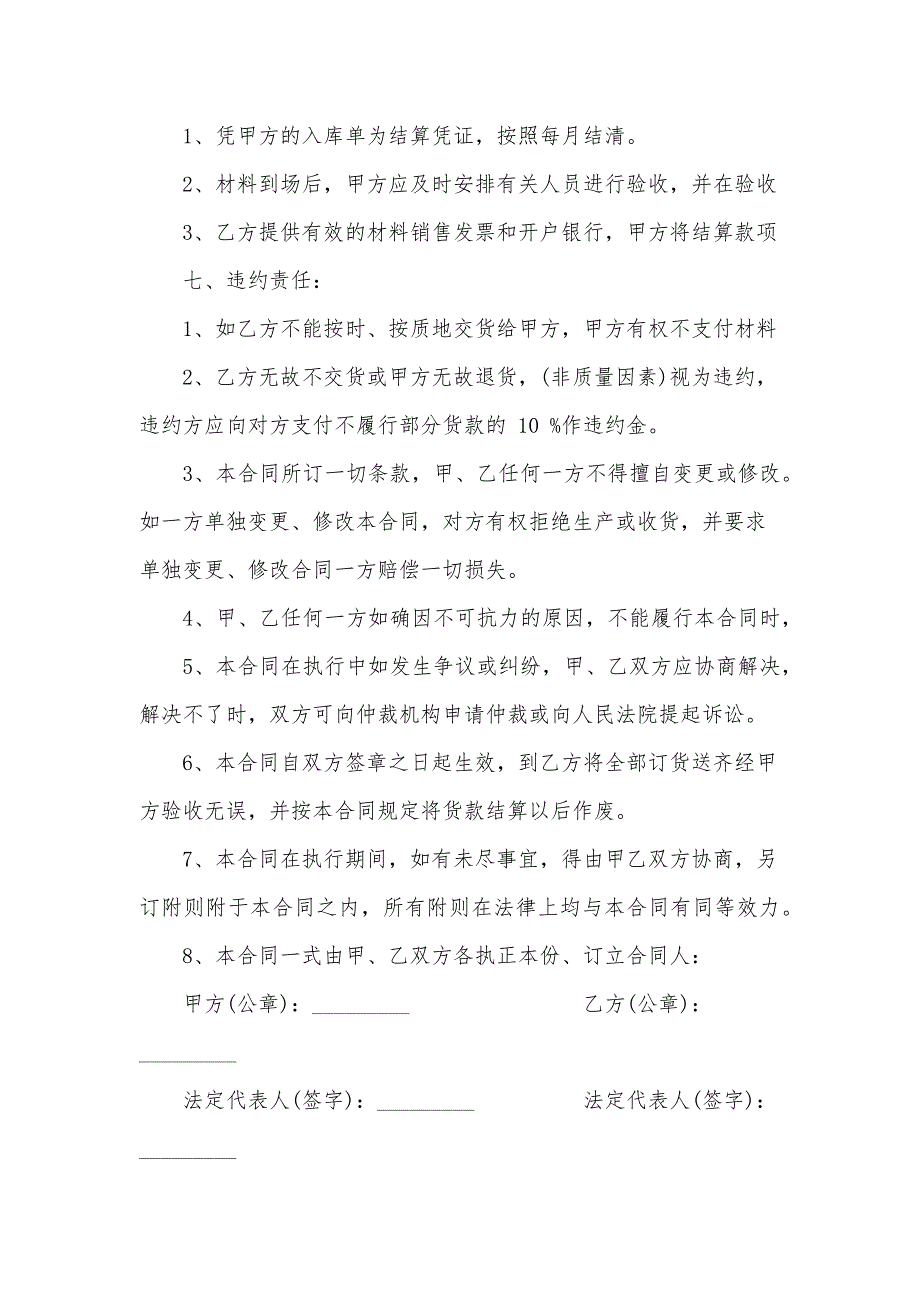 1、凭甲方的入库单为结算凭证，按照每月结清。
2、材料到场后，甲方应及时安排有关人员进行验收，并在验收
3、乙方提供有效的材料销售发票和开户银行，甲方将结算款项
七、违约责任：
1、如乙方不能按时、按质地交货给甲方，甲方有权不支付材料
2、乙方无故不交货或甲方无故退货，(非质量因素)视为违约，
违约方应向对方支付不履行部分货款的 10 %作违约金。
3、本合同所订一切条款，甲、乙任何一方不得擅自变更或修改。
如一方单独变更、修改本合同，对方有权拒绝生产或收货，并要求
单独变更、修改合同一方赔偿一切损失。
4、甲、乙任何一方如确因不可抗力的原因，不能履行本合同时，
5、本合同在执行中如发生争议或纠纷，甲、乙双方应协商解决，
解决不了时，双方可向仲裁机构申请仲裁或向人民法院提起诉讼。
6、本合同自双方签章之日起生效，到乙方将全部订货送齐经甲
方验收无误，并按本合同规定将货款结算以后作废。
7、本合同在执行期间，如有未尽事宜，得由甲乙双方协商，另
订附则附于本合同之内，所有附则在法律上均与本合同有同等效力。
8、本合同一式由甲、乙双方各执正本份、订立合同人：
甲方(公章)：_________ 乙方(公章)：
_________
法定代表人(签字)：_________ 法定代表人(签字)：
_________